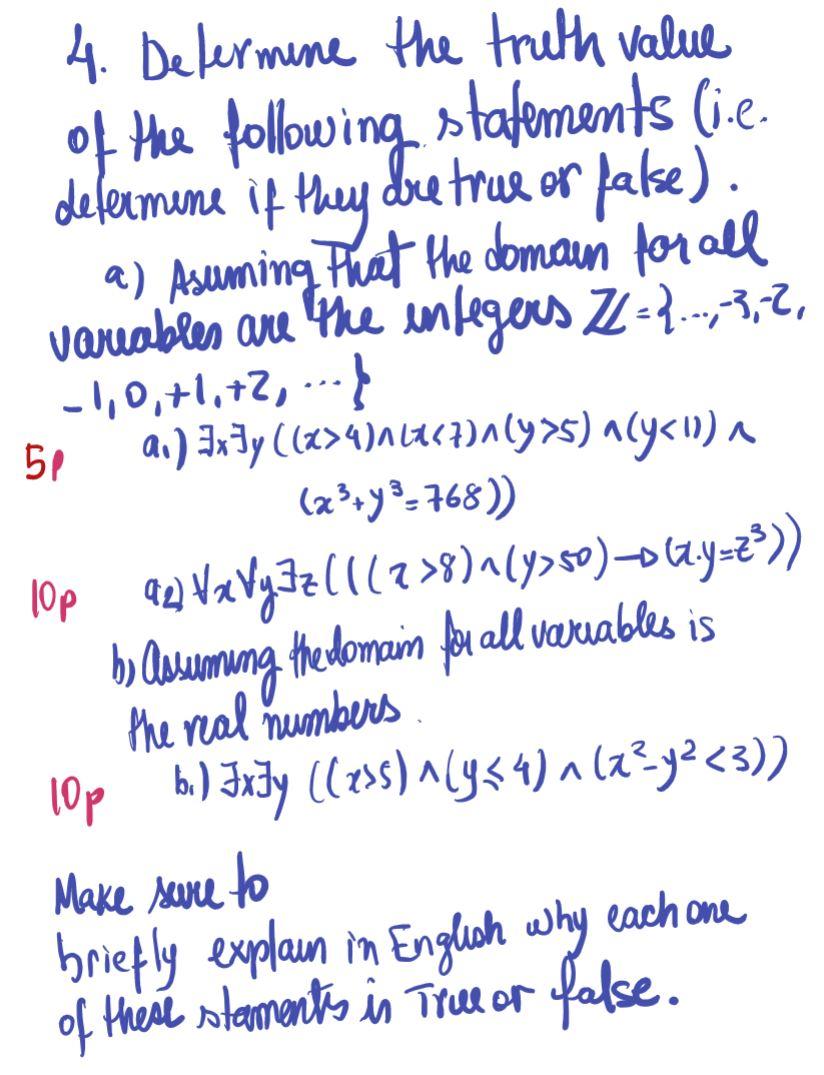 4. Determine the truth value
of the following statements (i.e.
determine if they are true or false).
a) Asuming That the domain for all
variables are the integers ℤ={...,-3,-2,
-1,0,+1,+2, ...}
5p a₁) ∃x∃y ((x>4)∧(x<7)∧(y>5) ∧(y<11) ∧
(x³+y³=768))
10p a₂) ∀x∀y∃z((((x>8)∧(y>50)→(x.y=z³))
b) Assuming the domain for all variables is
the real numbers.
10p b₁) ∃x∃y ((x>5) ∧(y≤4) ∧ (x²-y²<3))
Make sure to
briefly explain in English why each one
of these staments is True or false.